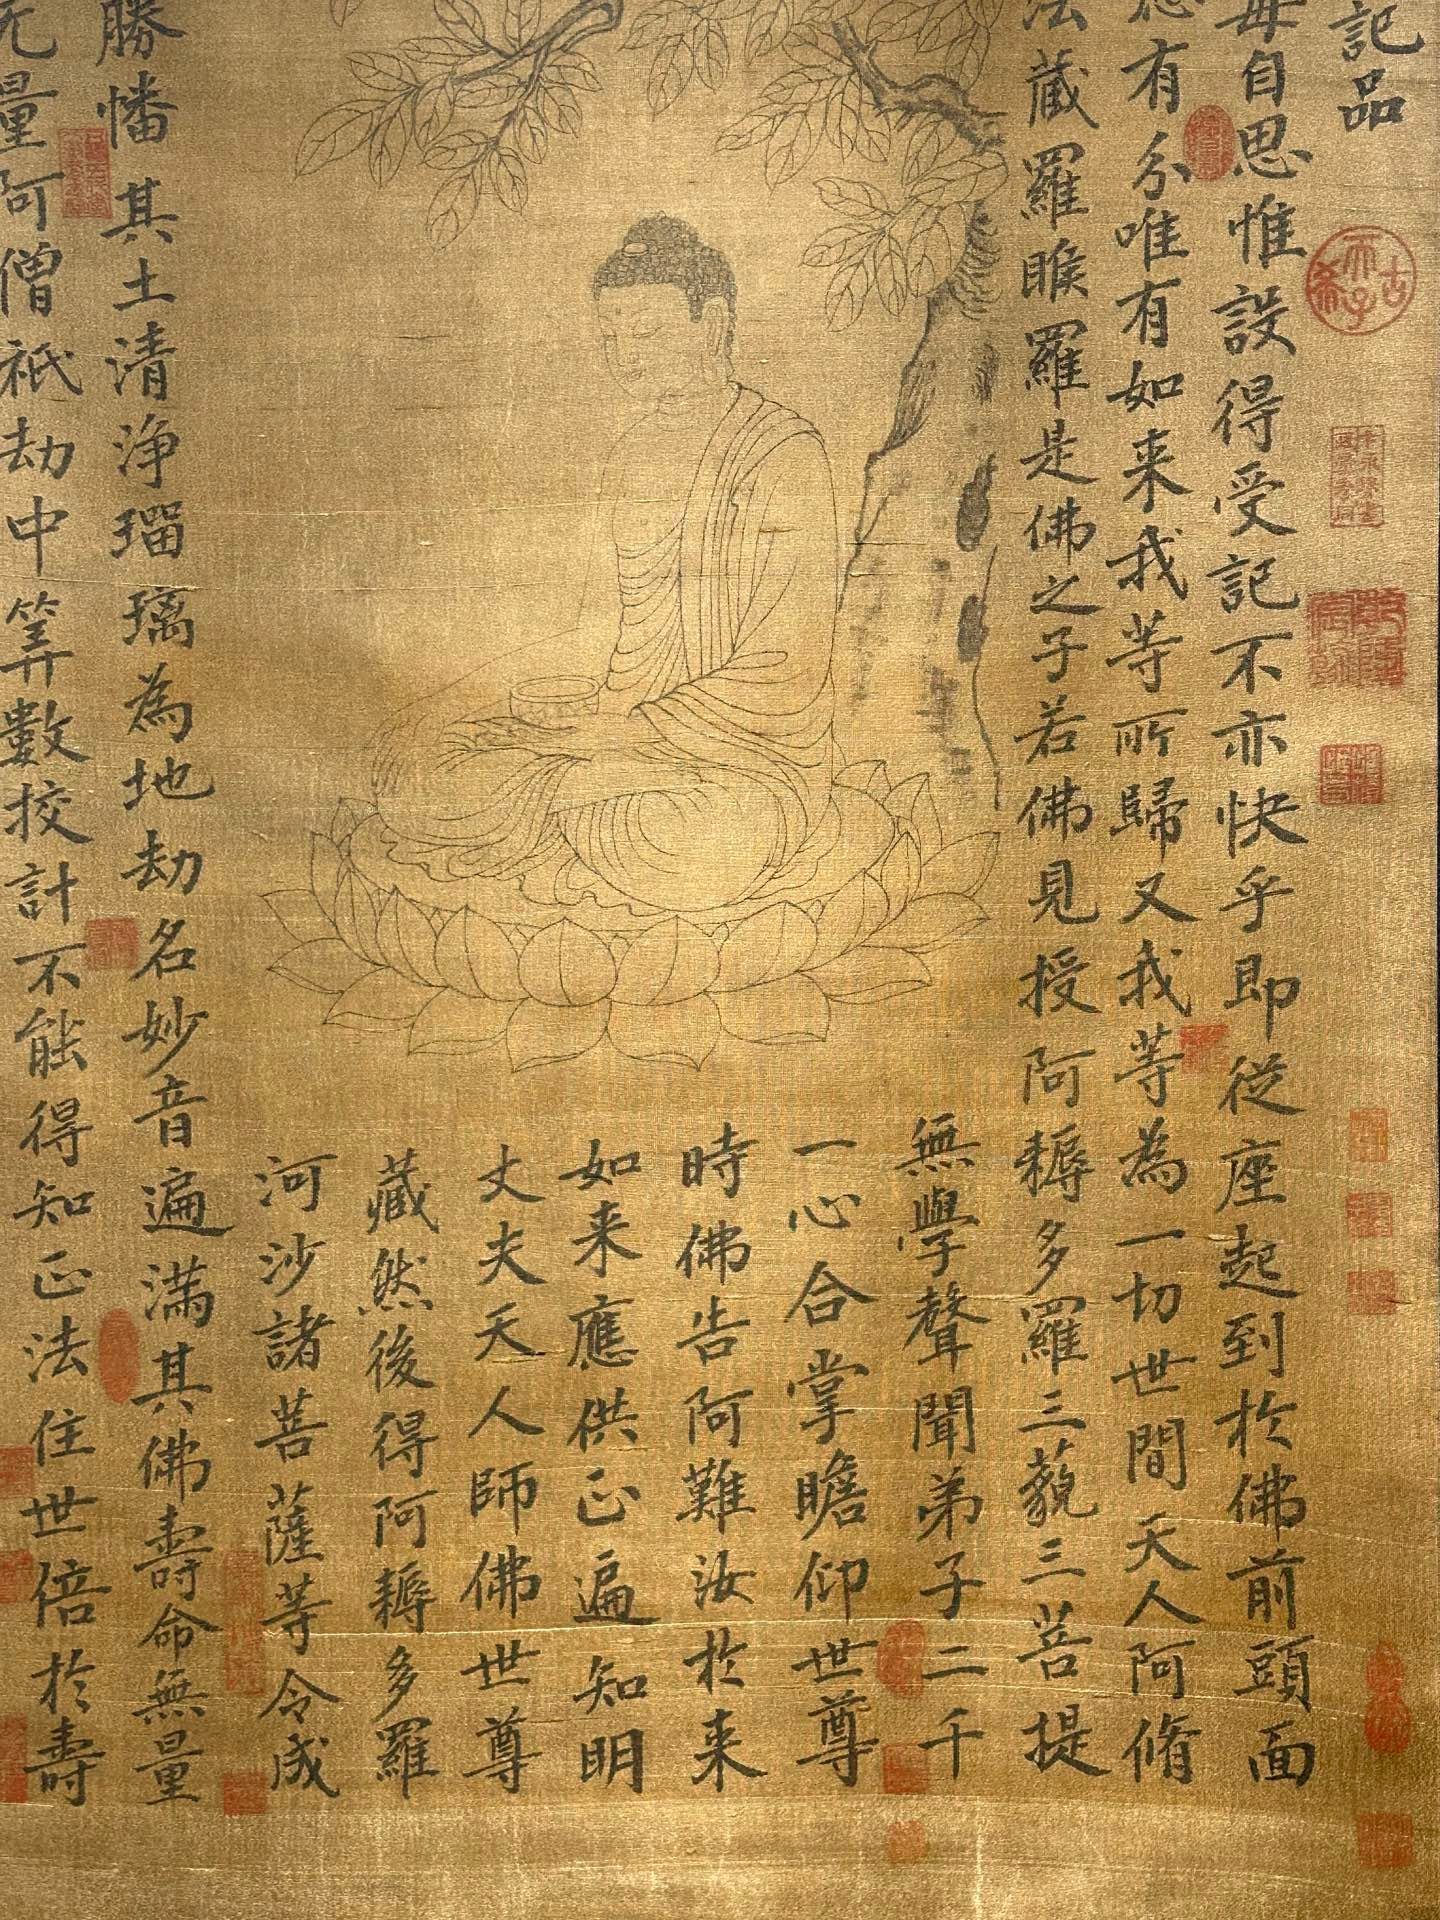 記品
毎自思惟設得受記不亦快乎即從座起到扵佛前頭面
有分唯有如来我等所歸又我等為一切世間天人阿脩
法藏羅睺羅是佛之子若佛見授阿耨多羅三藐三菩提
無學聲聞弟子二千
一心合掌瞻仰世尊
時佛告阿難汝扵来
如来應供正遍知明
丈夫天人師佛世尊
藏然後得阿耨多羅
河沙諸菩薩等令成
勝幡其土清淨瑠璃為地劫名妙音遍滿其佛壽命無量
量阿僧祇劫中筭數挍計不能得知正法住世倍扵壽